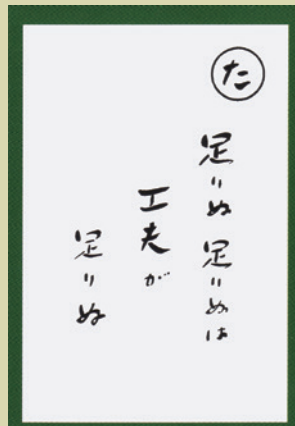 た
足りぬ足りぬは
工夫が
足りぬ